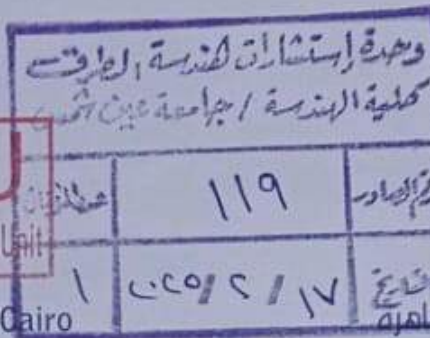 وحدة إستشارات هندسة الطرق
كلية الهندسة / جامعة عين شمس
رقم الصادر ١١٩
تاريخ ١٧ / ٢ / ٢٠٢٥ ١
Unit
Cairo
القاهرة